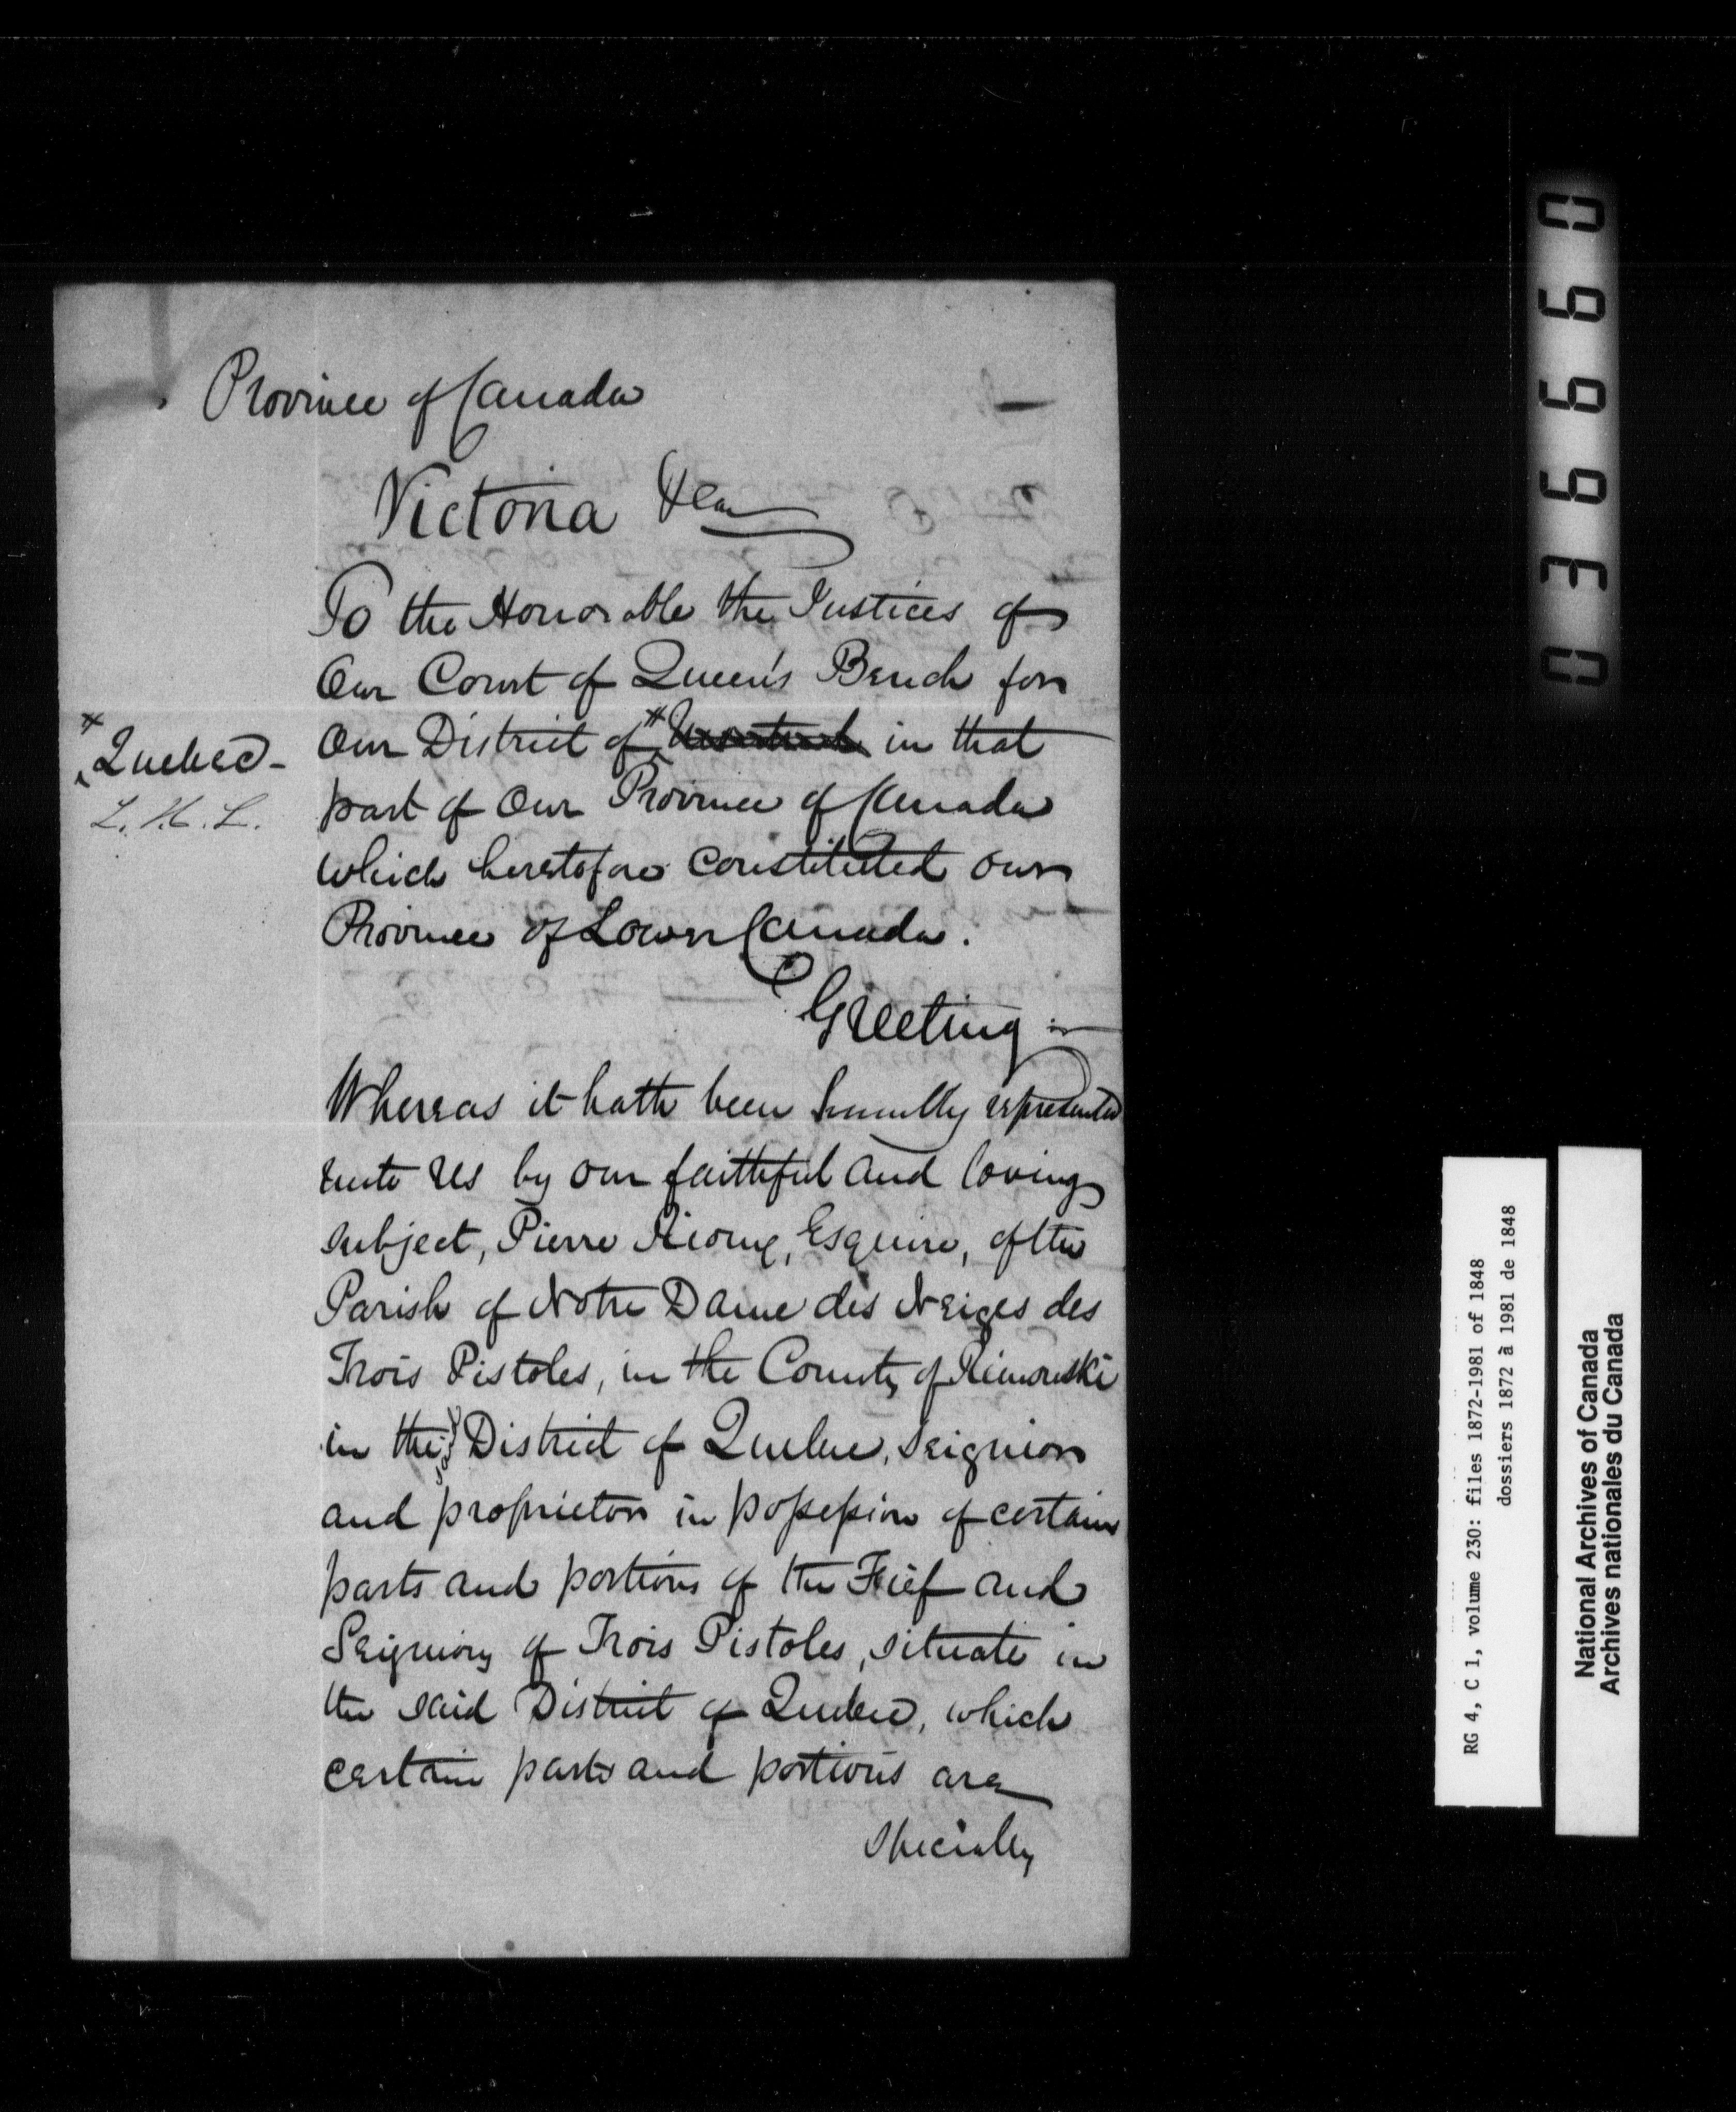 Province of Canada
Victoria &ca
To the Honorable the Justices of
Our Court of Queen's Bench for
Our District of * in that
* Quebec -
L. H. L.
part of Our Province of Canada
which heretofore constituted our
Province of Lower Canada.
Greeting :-
Whereas it hath been humbly represented
unto Us by our faithful and loving
subject, Pierre Rioux, Esquire, of the
Parish of Notre Dame des Neiges des
Trois Pistoles, in the County of Rimouski
in the said District of Quebec, Seignior
and proprietor in possession of certain
parts and portions of the Fief and
Seigniory of Trois Pistoles, situate in
the said District of Quebec, which
certain parts and portions are
specially
036660
RG 4, C 1, volume 230: files 1872-1981 of 1848
dossiers 1872 à 1981 de 1848
National Archives of Canada
Archives nationales du Canada